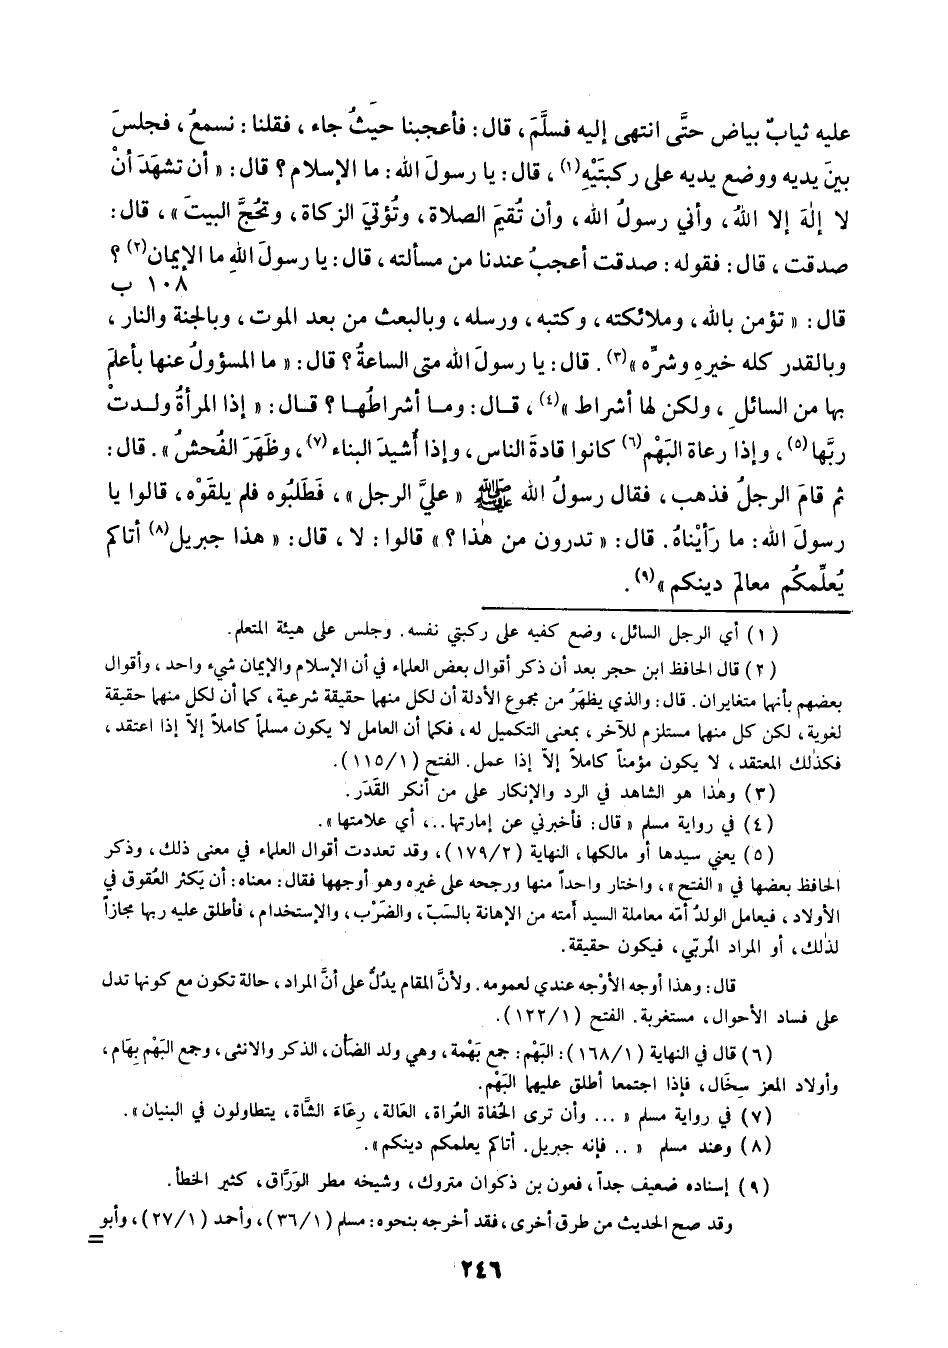 عليه ثيابٌ بياض حتَّى انتهى إليه فسلَّمَ، قال: فأعجبنا حيثُ جاء، فقلنا: نسمعُ، فجلسَ
بينَ يديه ووضع يديه على ركبتَيْهِ(١)، قال: يا رسولَ الله: ما الإسلام؟ قال: « أن تشهَدَ أنْ
لا إلهَ إلا اللهُ، وأني رسولُ الله، وأن تُقيمَ الصلاة، وتُؤتيَ الزكاة، وتحُجَّ البيتَ »، قال:
صدقت، قال: فقوله: صدقت أعجبُ عندنا من مسألته، قال: يا رسولَ اللهِ ما الإيمان(٢)؟
١٠٨ ب
قال: « تؤمن بالله، وملائكته، وكتبه، ورسله، وبالبعث من بعد الموت، وبالجنة والنار،
وبالقدر كله خيرِهِ وشرِّه »(٣). قال: يا رسولَ الله متى الساعةُ؟ قال: « ما المسؤولُ عنها بأعلمَ
بها من السائلِ، ولكن لها أشراط »(٤)، قال: وما أشراطُها؟ قال: « إذا المرأةُ ولدتْ
ربَّها(٥)، وإذا رعاة البَهْمِ(٦) كانوا قادةَ الناس، وإذا أُشيدَ البناء(٧)، وظَهَرَ الفُحشُ ». قال:
ثم قامَ الرجلُ فذهب، فقال رسولُ الله ﷺ « عليَّ الرجل »، فَطَلبُوه فلم يلقَوْه، قالوا يا
رسولَ الله: ما رَأيْناهُ. قال: « تدرون من هٰذا؟ » قالوا: لا، قال: « هذا جبريل(٨) أتاكم
يُعلِّمكُم معالمَ دينكم »(٩).
(١) أي الرجل السائل، وضع كفيه على ركبتي نفسه. وجلس على هيئة المتعلم.
(٢) قال الحافظ ابن حجر بعد أن ذكر أقوال بعض العلماء في أن الإسلام والإيمان شيء واحد، وأقوال
بعضهم بأنهما متغايران. قال: والذي يظهَرُ من مجموع الأدلة أن لكل منهما حقيقة شرعية، كما أن لكل منهما حقيقة
لغوية، لكن كل منهما مستلزم للآخر، بمعنى التكميل له، فكما أن العامل لا يكون مسلماً كاملاً إلاّ إذا اعتقد،
فكذلك المعتقد، لا يكون مؤمناً كاملاً إلاّ إذا عمل. الفتح (١/١١٥).
(٣) وهٰذا هو الشاهد في الرد والإنكار على من أنكر القَدَر.
(٤) في رواية مسلم « قال: فأخبرني عن إمارتها..، أي علامتها ».
(٥) يعني سيدها أو مالكها، النهاية (٢/١٧٩)، وقد تعددت أقوال العلماء في معنى ذلك، وذكر
الحافظ بعضها في « الفتح »، واختار واحداً منها ورجحه على غيره وهو أوجهها فقال: معناه: أن يَكثر العُقوق في
الأولاد، فيعامل الولدُ أمّه معاملة السيد أمته من الإهانة بالسَبّ، والضَرْب، والإستخدام، فأطلق عليه ربها مجازاً
لذٰلك، أو المراد المُربّي، فيكون حقيقة.
قال: وهذا أوجه الأوْجه عندي لعمومه. ولأنَّ المقام يدُلُّ على أنَّ المراد، حالة تكون مع كونها تدل
على فساد الأحوال، مستغربة. الفتح (١/١٢٢).
(٦) قال في النهاية (١/١٦٨): البَهْم: جمع بَهْمة، وهي ولد الضأن، الذكر والانثى، وجمع البَهْم بِهَام،
وأولاد المعز سِخَال، فإذا اجتمعا أطلق عليهما البَهْم.
(٧) في رواية مسلم « ... وأن ترى الحُفاة العُراة، العَالة، رِعَاءَ الشَّاة، يتطاولون في البنيان ».
(٨) وعند مسلم « .. فإنه جبريل. أتاكم يعلمكم دينكم ».
(٩) إسناده ضعيف جداً، فعون بن ذكوان متروك، وشيخه مطر الوَرَّاق، كثير الخطأ.
وقد صح الحديث من طرق أخرى، فقد أخرجه بنحوه: مسلم (١/٣٦)، وأحمد (١/٢٧)، وأبو
=
٢٤٦